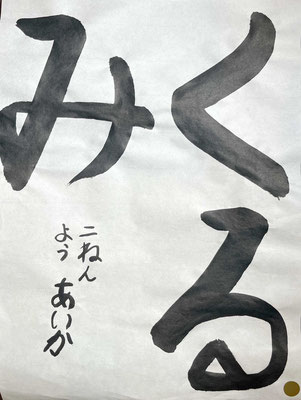 くる
み
二ねん
よう あいか